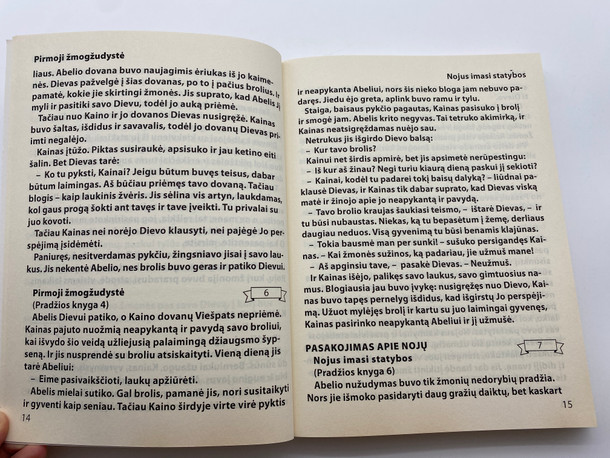 Pirmoji žmogžudystė
liaus. Abelio dovana buvo naujagimis ėriukas iš jo kaime-
nės. Dievas pažvelgė į šias dovanas, po to į pačius brolius. Ir
pamatė, kokie jie skirtingi žmonės. Jis suprato, kad Abelis Jį
myli ir pasitiki savo Dievu, todėl jo auką priėmė.
Tačiau nuo Kaino ir jo dovanos Dievas nusigręžė. Kainas
buvo šaltas, išdidus ir savavalis, todėl jo dovanų Dievas pri-
imti negalėjo.
Kainas įtūžo. Piktas susiraukė, apsisuko ir jau ketino eiti
šalin. Bet Dievas tarė:
– Ko tu pyksti, Kainai? Jeigu būtum buvęs teisus, dabar
būtum laimingas. Aš būčiau priėmęs tavo dovaną. Tačiau
blogis – kaip laukinis žvėris. Jis sėlina vis artyn, laukdamas,
kol gaus progą šokti ant tavęs ir tave įveikti. Tu privalai su
juo kovoti.
Tačiau Kainas nei norėjo Dievo klausyti, nei pajėgė Jo per-
spėjimą įsidėmėti.
Paniuręs, nesitverdamas pykčiu, žingsniavo jisai į savo lau-
kus. Jis nekentė Abelio, nes brolis buvo geras ir patiko Dievui.
Pirmoji žmogžudystė
6
(Pradžios knyga 4)
Abelis Dievui patiko, o Kaino dovanų Viešpats nepriėmė.
Kainas pajuto nuožmią neapykantą ir pavydą savo broliui,
kai išvydo šio veidą užliejusią palaimingą džiaugsmo šyp-
seną. Ir jis nusprendė su broliu atsiskaityti. Vieną dieną jis
tarė Abeliui:
– Eime pasivaikščioti, laukų apžiūrėti.
Abelis mielai sutiko. Gal brolis, pamanė jis, nori susitaikyti
ir gyventi kaip seniau. Tačiau Kaino širdyje virte virė pyktis
14
Nojus imasi statybos
ir neapykanta Abeliui, nors šis nieko bloga jam nebuvo pa-
daręs. Jiedu ėjo greta, aplink buvo ramu ir tylu.
Staiga, baisaus pykčio pagautas, Kainas pasisuko į brolį
ir smogė jam. Abelis krito negyvas. Tai tetruko akimirką, ir
Kainas neatsigręždamas nuėjo sau.
Netrukus jis išgirdo Dievo balsą:
– Kur tavo brolis?
Kainui net širdis apmirė, bet jis apsimetė nerūpestingu:
– Iš kur aš žinau? Negi turiu kiaurą dieną paskui jį sekioti?
– Kainai, kodėl tu padarei tokį baisų dalyką? – liūdnai pa-
klausė Dievas, ir Kainas tik dabar suprato, kad Dievas viską
matė ir žinojo apie jo neapykantą ir pavydą.
– Tavo brolio kraujas šaukiasi teismo, – ištarė Dievas, – ir
tu būsi nubaustas. Niekas, ką tu bepasėtum į žemę, derliaus
daugiau neduos. Visą gyvenimą tu būsi benamis klajūnas.
– Tokia bausmė man per sunki! – sušuko persigandęs Kai-
nas. – Kai žmonės sužinos, ką padariau, jie užmuš mane!
– Aš apginsiu tave, – pasakė Dievas. – Neužmuš.
Ir Kainas išėjo, palikęs savo laukus, savo gimtuosius na-
mus. Blogiausia jau buvo įvykę: nusigręžęs nuo Dievo, Kai-
nas buvo tapęs pernelyg išdidus, kad išgirstų Jo perspėji-
mą. Užuot mylėjęs brolį ir kartu su juo laimingai gyvenęs,
Kainas pasirinko neapykantą Abeliui ir jį užmušė.
PASAKOJIMAS APIE NOJŲ
Nojus imasi statybos
7
(Pradžios knyga 6)
Abelio nužudymas buvo tik žmonių nedorybių pradžia.
Nors jie išmoko pasidaryti daug gražių daiktų, bet kaskart
15